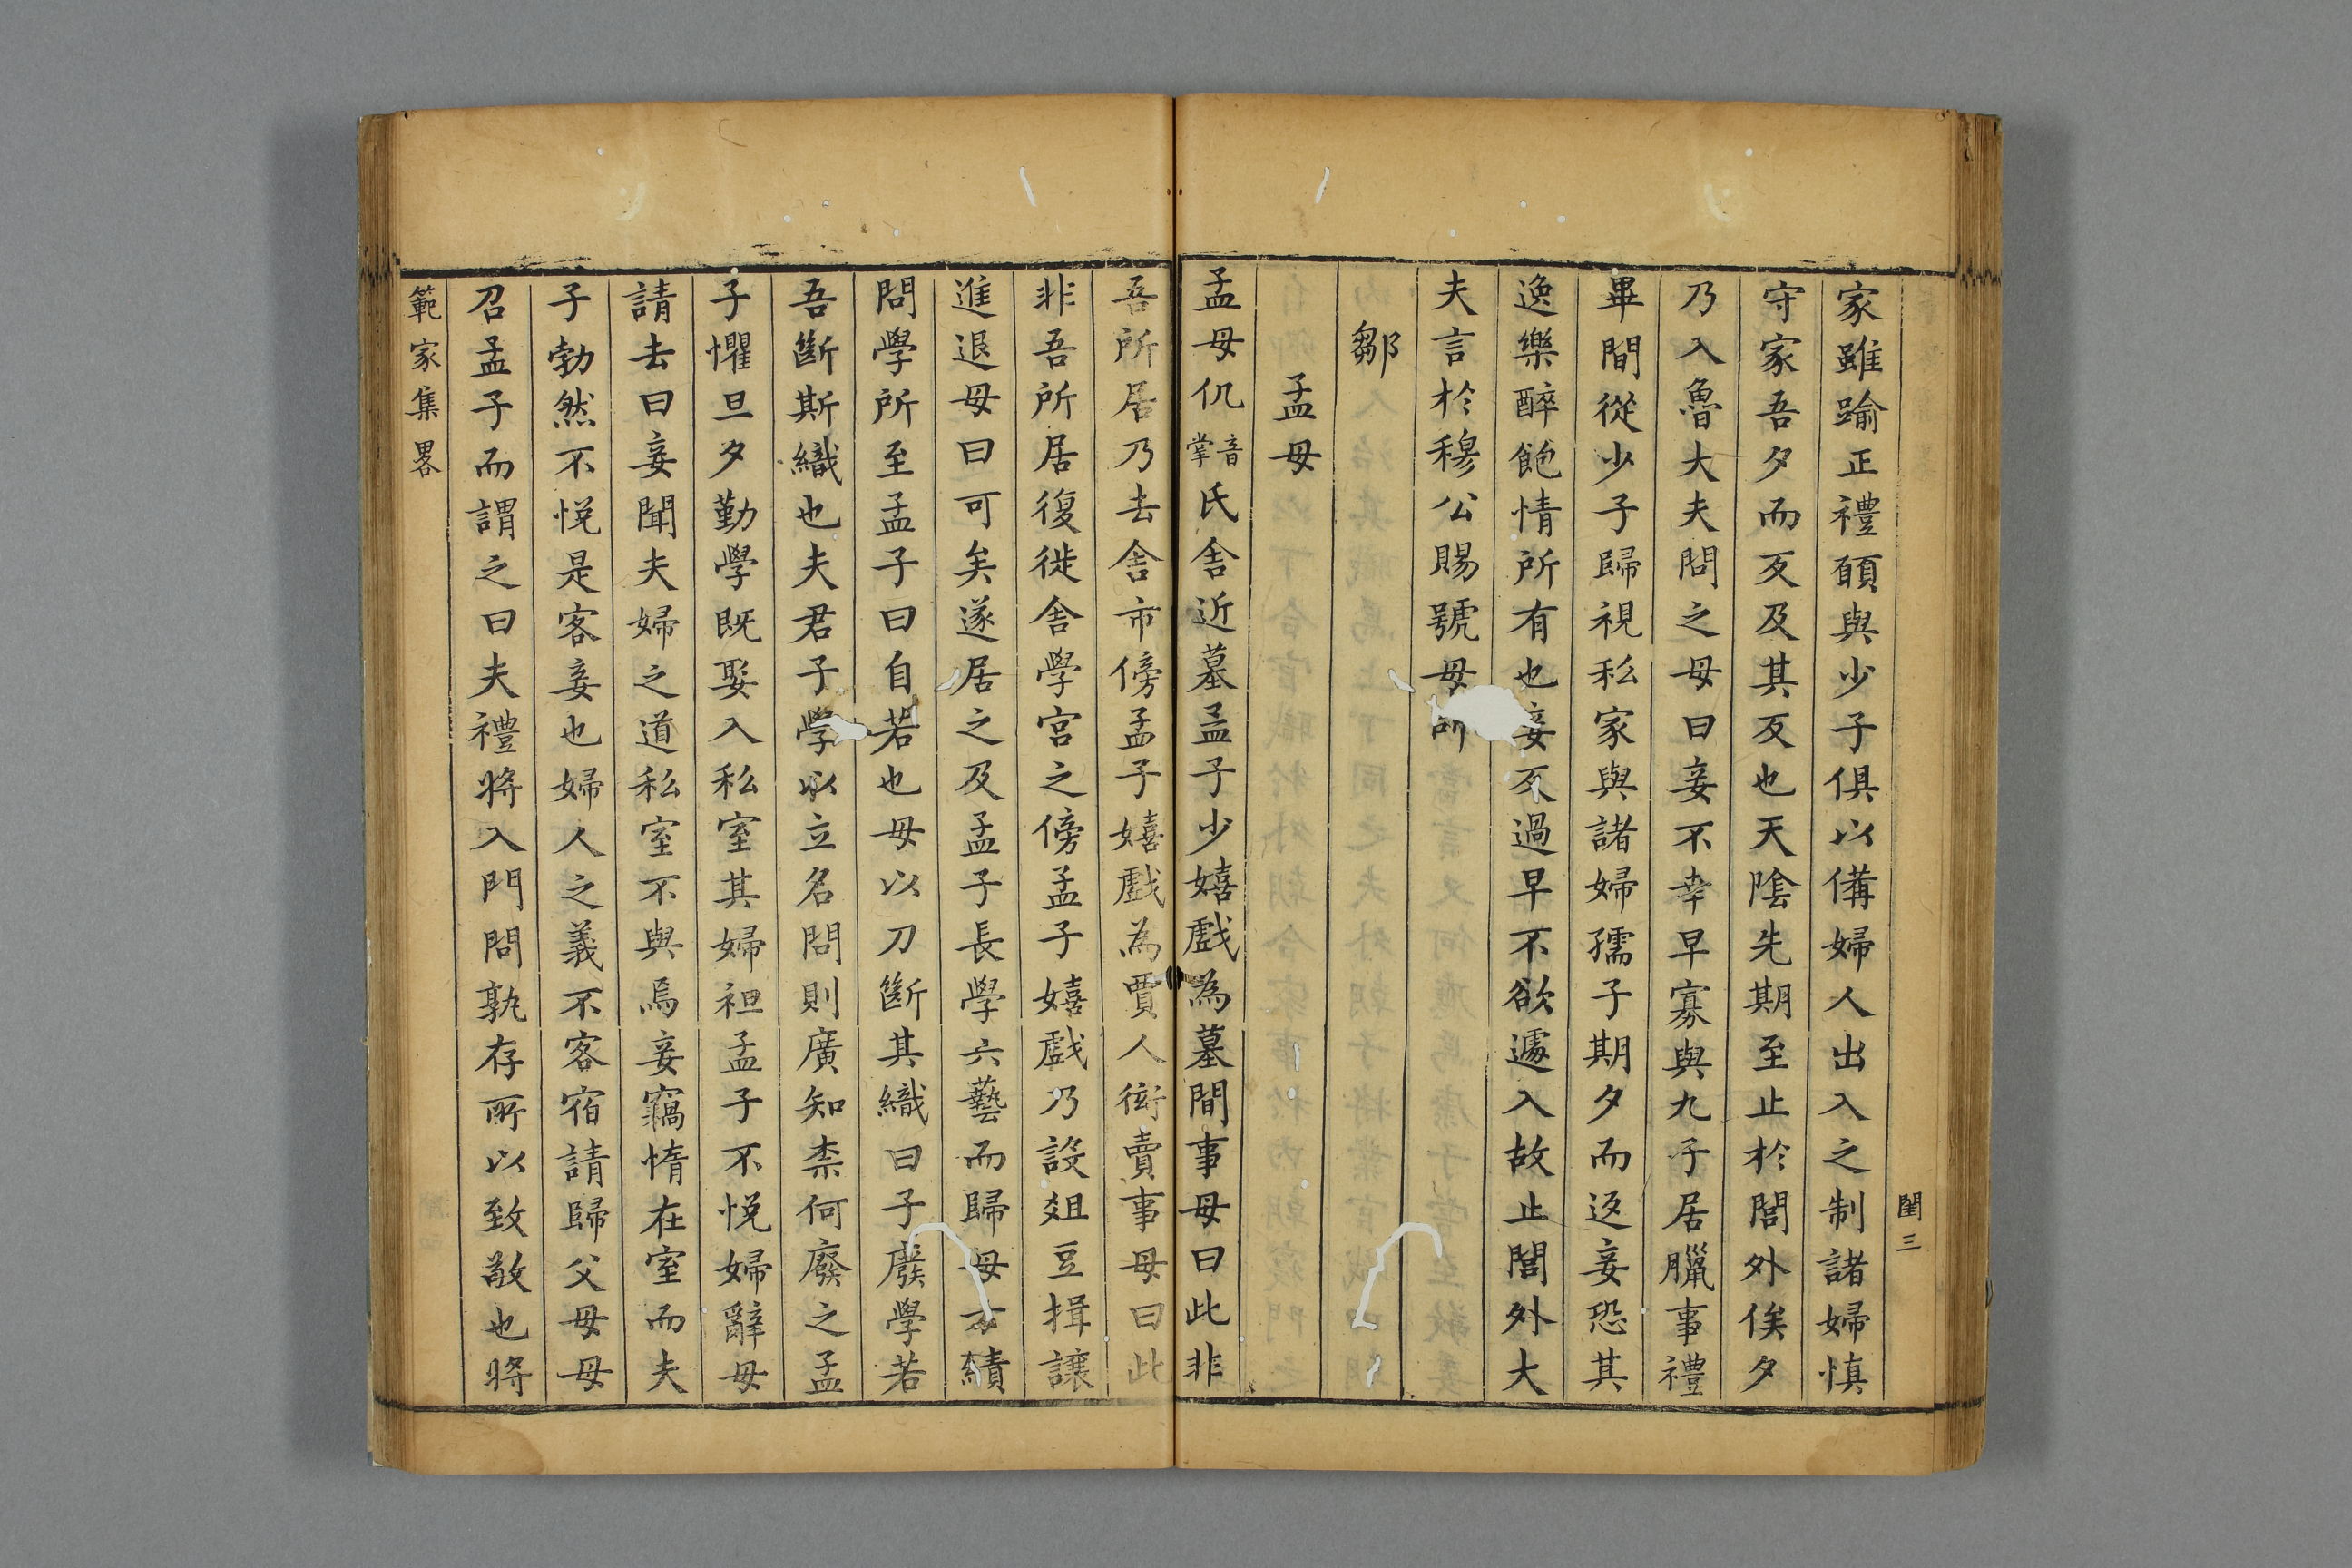 閨三
家雖踰正禮頋與少子俱以備婦人出入之制諸婦慎
守家吾夕而反及其反也天陰先期至止於閭外俟夕
乃入魯大夫問之母曰妾不幸早寡與九子居臘事禮
畢間從少子歸視私家與諸婦孺子期夕而返妾恐其
逸樂醉飽情所有也妾反過早不欲遽入故止閭外大
夫言於穆公賜號母
鄒
孟母
孟母仉音掌氏舍近墓孟子少嬉戲為墓間事母曰此非
吾所居乃去舍市傍孟子嬉戲為賈人衒賣事母曰此
非吾所居復徙舍學宮之傍孟子嬉戲乃設俎豆揖讓
進退母曰可矣遂居之及孟子長學六藝而歸母方績
問學所至孟子曰自若也母以刀斷其織曰子廢學若
吾斷斯織也夫君子學以立名問則廣知柰何廢之孟
子懼旦夕勤學既娶入私室其婦袒孟子不悅婦辭母
請去曰妾聞夫婦之道私室不與焉妾竊惰在室而夫
子勃然不悅是客妾也婦人之義不客宿請歸父母母
召孟子而謂之曰夫禮將入門問孰存所以致敬也將
範家集畧